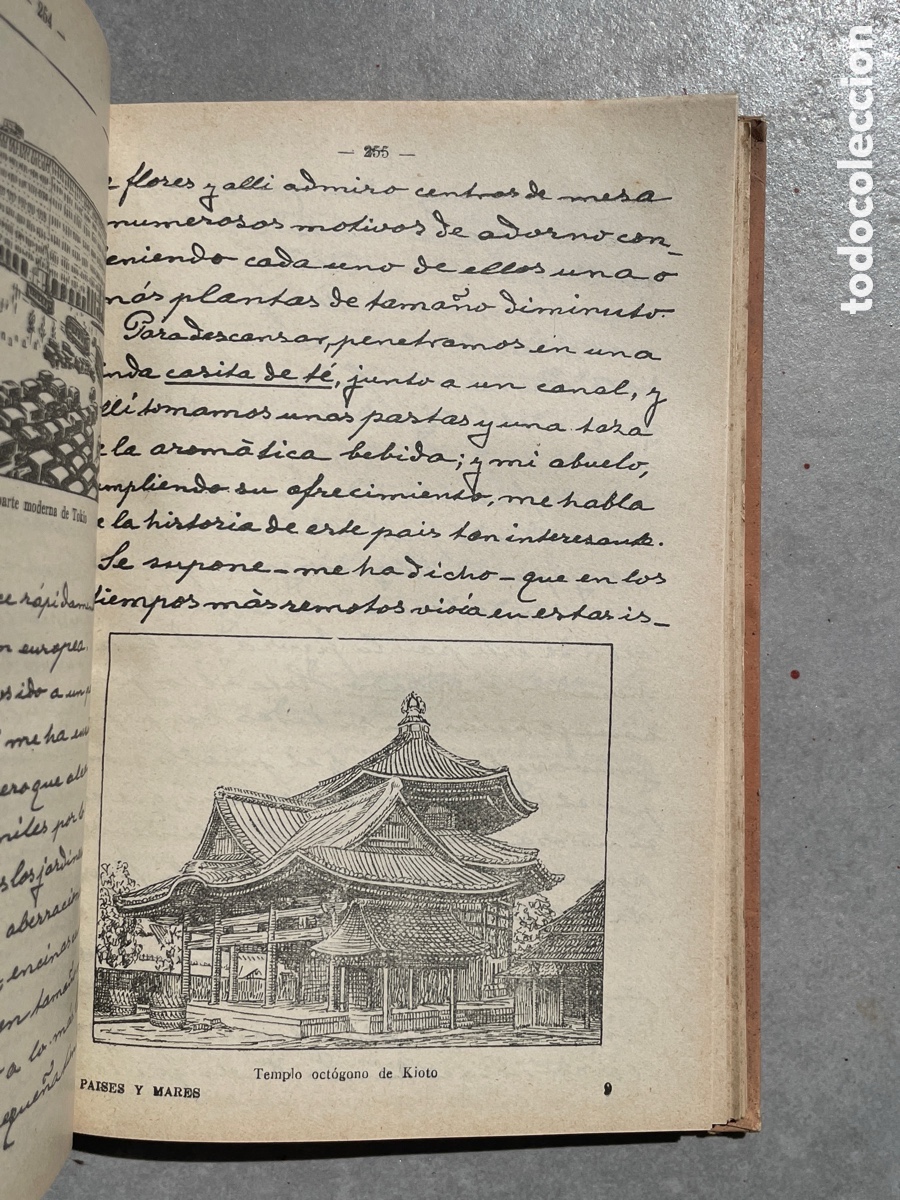 — 254 —
parte moderna de Tokio
ce rápidamen
n europea.
os ido a un p
me ha en
ero que aber
miles por
s los jardin
aberracion
encinas
en tamañ
a lo m
equeña
— 255 —
e flores y alli admiro centros de mesa
numerosos motivos de adorno con-
eniendo cada uno de ellos una o
más plantas de tamaño diminuto.
Para descansar, penetramos en una
inda casita de té, junto a un canal, y
llí tomamos unas pastas y una taza
e la aromàtica bebida; y mi abuelo,
umpliendo su ofrecimiento, me habla
e la historia de este pais tan interesante.
Se supone-me ha dicho-que en los
tiempos màs remotos vivía en estas is-
Templo octógono de Kioto
PAISES Y MARES
9
todocoleccion